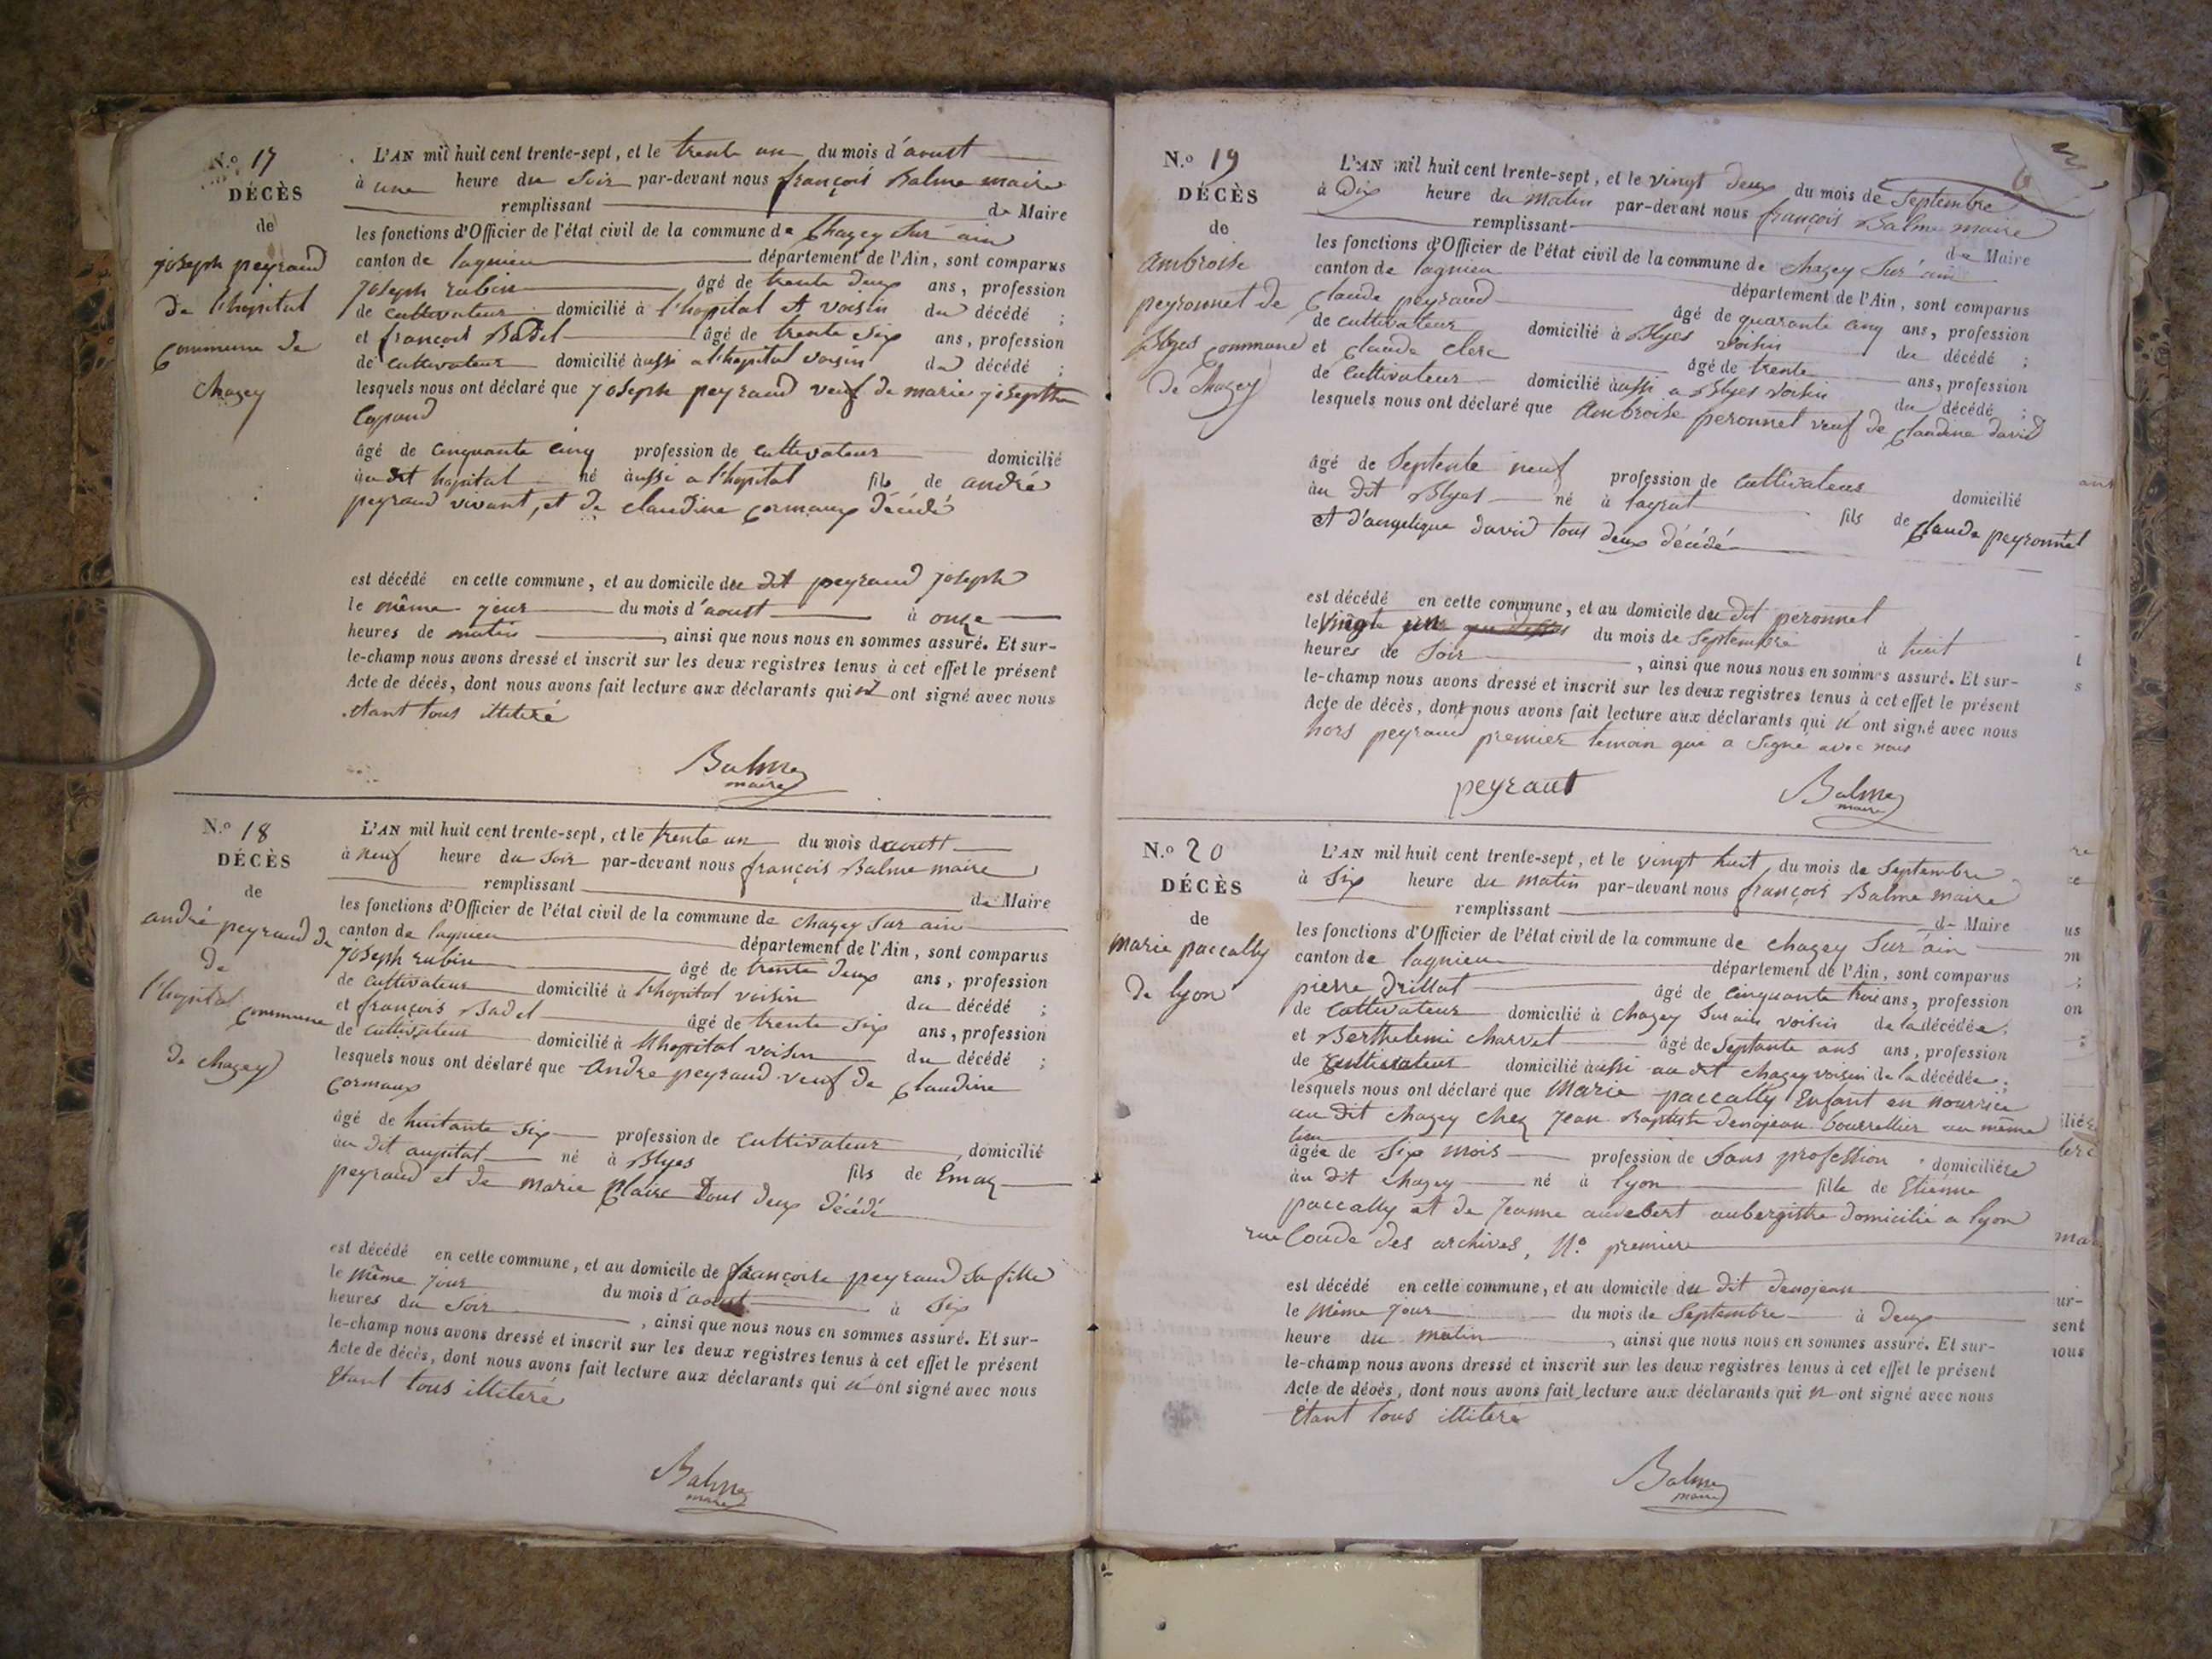 N.o 17
DÉCÈS
de
joseph peyraud
de l'hopital
commune de
chazey
L'AN mil huit cent trente-sept, et le trente un du mois d'aoust
à une heure du Soir par-devant nous françois Balme maire
remplissant de Maire
les fonctions d'Officier de l'état civil de la commune de Chazey Sur ain
canton de lagnieu département de l'Ain, sont comparus
joseph rubin âgé de trente deux ans, profession
de cultivateur domicilié à l'hopital et voisin du décédé ;
et françois Badel âgé de trente Six ans, profession
de cultivateur domicilié àussi a l'hopital voisin du décédé ;
lesquels nous ont déclaré que joseph peyraud veuf de marie josephte
âgé de cinquante cinq profession de cultivateur domicilié
àu dit hopital né àussi a l'hopital fils de andré
peyraud vivant, et de claudine cormaux décédé
est décédé en cette commune, et au domicile du dit peyraud joseph
le même jour du mois d'aoust à onze
heures de matin, ainsi que nous nous en sommes assuré. Et sur-
le-champ nous avons dressé et inscrit sur les deux registres tenus à cet effet le présent
Acte de décès, dont nous avons fait lecture aux déclarants qui n' ont signé avec nous
étant tous illiteré
Balme
maire
N.o 18
DÉCÈS
de
andré peyraud de
de
l'hopital commune
de chazey
L'AN mil huit cent trente-sept, et le trente un du mois d'aoust
à neuf heure du Soir par-devant nous françois Balme maire
remplissant de Maire
les fonctions d'Officier de l'état civil de la commune de chazey Sur ain
canton de lagnieu département de l'Ain, sont comparus
joseph rubin âgé de trente deux ans, profession
de cultivateur domicilié à l'hopital voisin du décédé ;
et françois Badel âgé de trente Six ans, profession
de cultivateur domicilié à l'hopital voisin du décédé ;
lesquels nous ont déclaré que andre peyraud veuf de claudine
cormaux
âgé de huitante Six profession de cultivateur, domicilié
àu dit aupital né à Blyes fils de Emaz
peyraud et de marie Claire tous deux décédé
est décédé en cette commune, et au domicile de françoise peyraud sa fille
le même jour du mois d'aoust à Six
heures du Soir, ainsi que nous nous en sommes assuré. Et sur-
le-champ nous avons dressé et inscrit sur les deux registres tenus à cet effet le présent
Acte de décès, dont nous avons fait lecture aux déclarants qui n' ont signé avec nous
Etant tous illiteré
Balme
maire
N.o 19
DÉCÈS
de
ambroise
peyronnet de
Blyes commune
de chazey
L'AN mil huit cent trente-sept, et le vingt deux du mois de Septembre
à Dix heure du matin par-devant nous françois Balme maire
remplissant de Maire
les fonctions d'Officier de l'état civil de la commune de chazey Sur ain
canton de lagnieu département de l'Ain, sont comparus
Claude peyraud âgé de quarante cinq ans, profession
de cultivateur domicilié à Blyes voisin du décédé ;
et claude clerc âgé de trente ans, profession
de cultivateur domicilié àussi a Blyes voisin du décédé ;
lesquels nous ont déclaré que ambroise peronnet veuf de claudine david
âgé de Septente neuf profession de cultivateur domicilié
àu dit Blyes né à layrat fils de claude peyronnet
et d'angelique david tous deux décédé
est décédé en cette commune, et au domicile du dit peronnet
le vingte un du mois de Septembre à huit
heures de Soir, ainsi que nous nous en sommes assuré. Et sur-
le-champ nous avons dressé et inscrit sur les deux registres tenus à cet effet le présent
Acte de décès, dont nous avons fait lecture aux déclarants qui n' ont signé avec nous
hors peyraud premier temoin qui a signé avec nous
peyraut
Balme
maire
N.o 20
DÉCÈS
de
marie paccally
de lyon
L'AN mil huit cent trente-sept, et le vingt huit du mois de Septembre
à Six heure du matin par-devant nous françois Balme maire
remplissant de Maire
les fonctions d'Officier de l'état civil de la commune de chazey Sur ain
canton de lagnieu département de l'Ain, sont comparus
pierre Drillat âgé de cinquante trois ans, profession
de cultivateur domicilié à chazey Sur ain voisin de la décédée ;
et Berthelemi charvet âgé de Septante ans ans, profession
de cultivateur domicilié àussi au dit chazey voisin de la décédée ;
lesquels nous ont déclaré que Marie paccally Enfant en nourrice
au dit chazey chez Jean Baptiste Denojean bourrellier au même
lieu
âgée de Six mois profession de Sans profession domiciliée
àu dit chazey né à lyon fille de Etienne
paccally et de Jeanne audebert aubergistre domicilié a lyon
rue Coude des archives, N.o premiere
est décédé en cette commune, et au domicile du dit Denojean
le même jour du mois de Septembre à Deux
heure du matin, ainsi que nous nous en sommes assuré. Et sur-
le-champ nous avons dressé et inscrit sur les deux registres tenus à cet effet le présent
Acte de décès, dont nous avons fait lecture aux déclarants qui n ont signé avec nous
Etant tous illiteré
Balme
maire